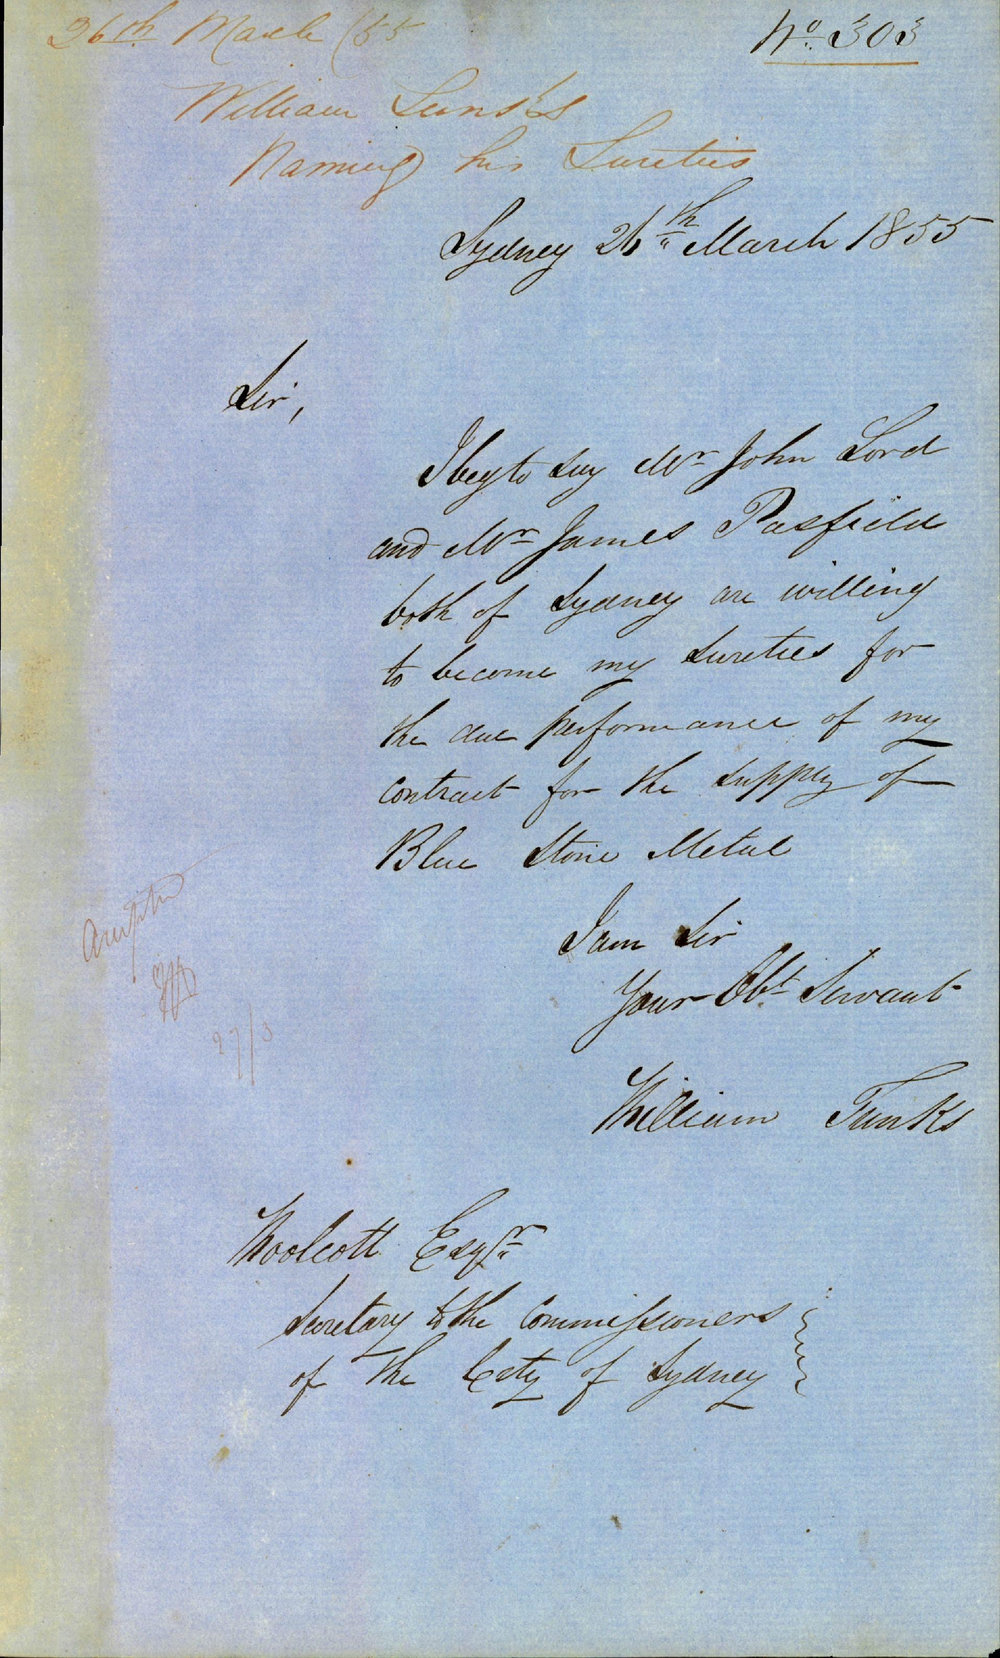 26th March /55
No. 303
William Tunks
Naming his Sureties
Sydney 26th March 1855
Sir,
I beg to say Mr John Lord
and Mr James Pasfield
both of Sydney are willing
to become my sureties for
the due performance of my
contract for the supply of
Blue Stone Metal
I am Sir
Your Obt Servant
William Tunks
27/3
Woolcott Esqr
Secretary to the Commissioners
of the City of Sydney